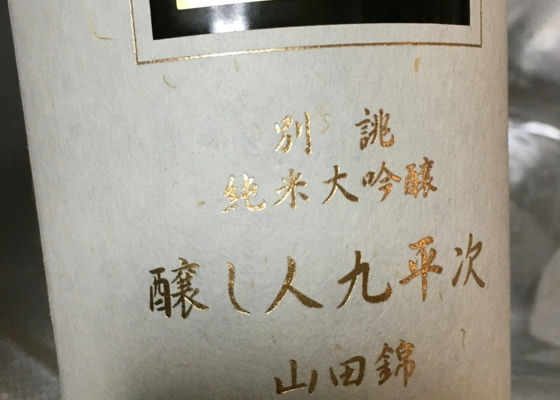 別誂
純米大吟醸
醸し人九平次
山田錦